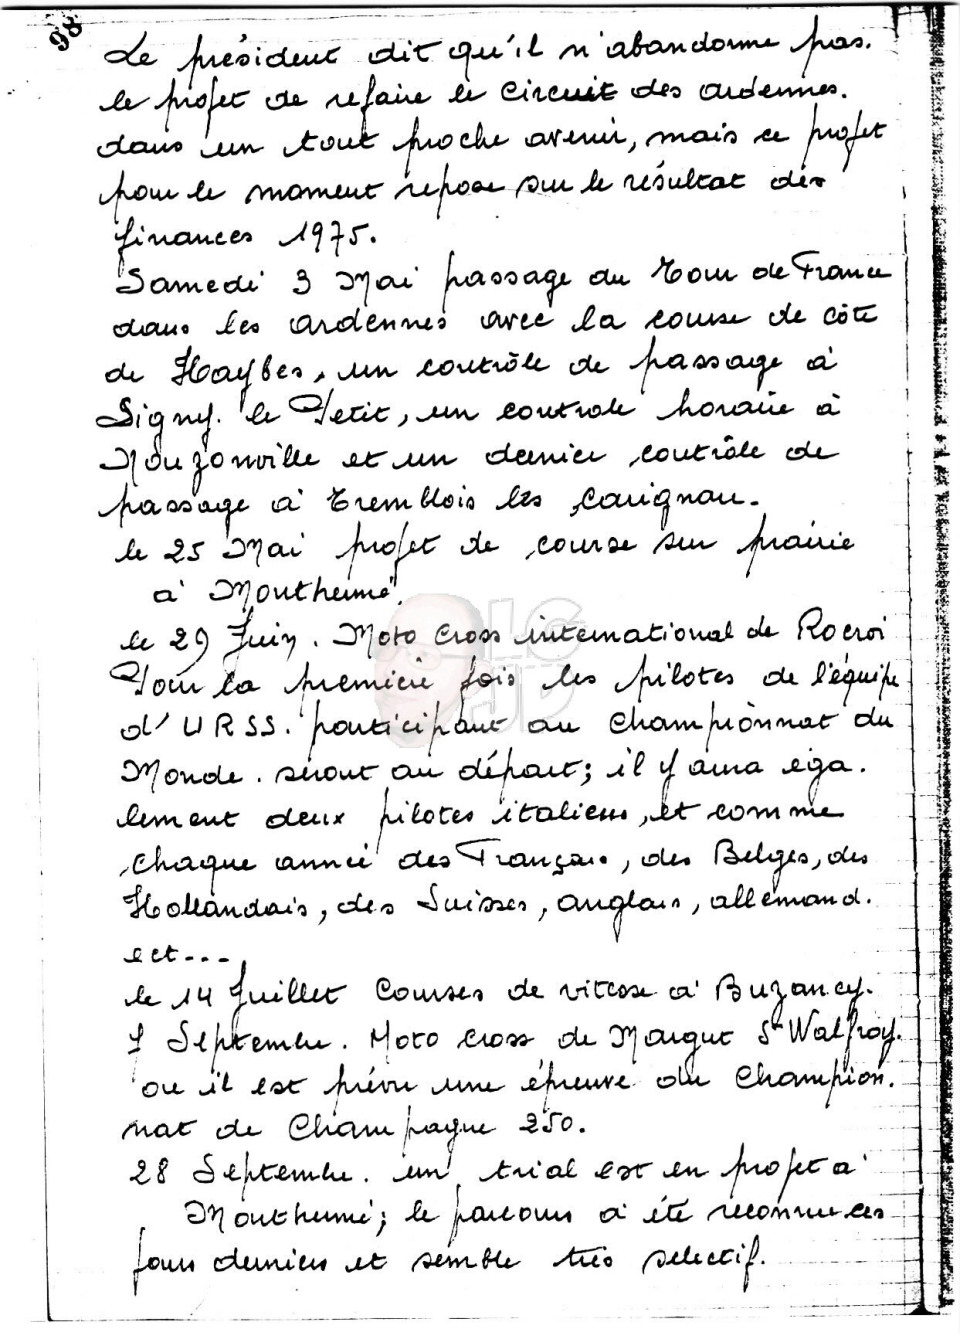 98
Le président dit qu'il n'abandonne pas.
le projet de refaire le Circuit des ardennes.
dans un tout proche avenir, mais ce projet
pour le moment repose sur le résultat des
finances 1975.
Samedi 3 Mai passage du Tour de France
dans les ardennes avec la course de côte
de Haybes, un contrôle de passage à
Signy. le Petit, un controle horaire à
Nouzonville et un dernier contrôle de
passage à Tremblois les Carignan.
le 25 Mai projet de course sur prairie
à Monthermé.
le 29 Juin. Moto Cross international de Rocroi
Pour la première fois les pilotes de l'équipe
d'URSS. participant au Championnat du
Monde. seront au départ; il y aura éga.
lement deux pilotes italiens, et comme
chaque année des Français, des Belges, des
Hollandais, des Suisses, anglais, allemand.
ect...
le 14 Juillet Courses de vitesse à Buzancy.
7 Septembre. Moto Cross de Margut St Walfroy.
ou il est prévu une épreuve du Champion.
nat de Champagne 250.
28 Septembre. un trial est en projet à
Monthermé; le parcours a été reconnu ces
jours derniers et semble très selectif.
LC
JD